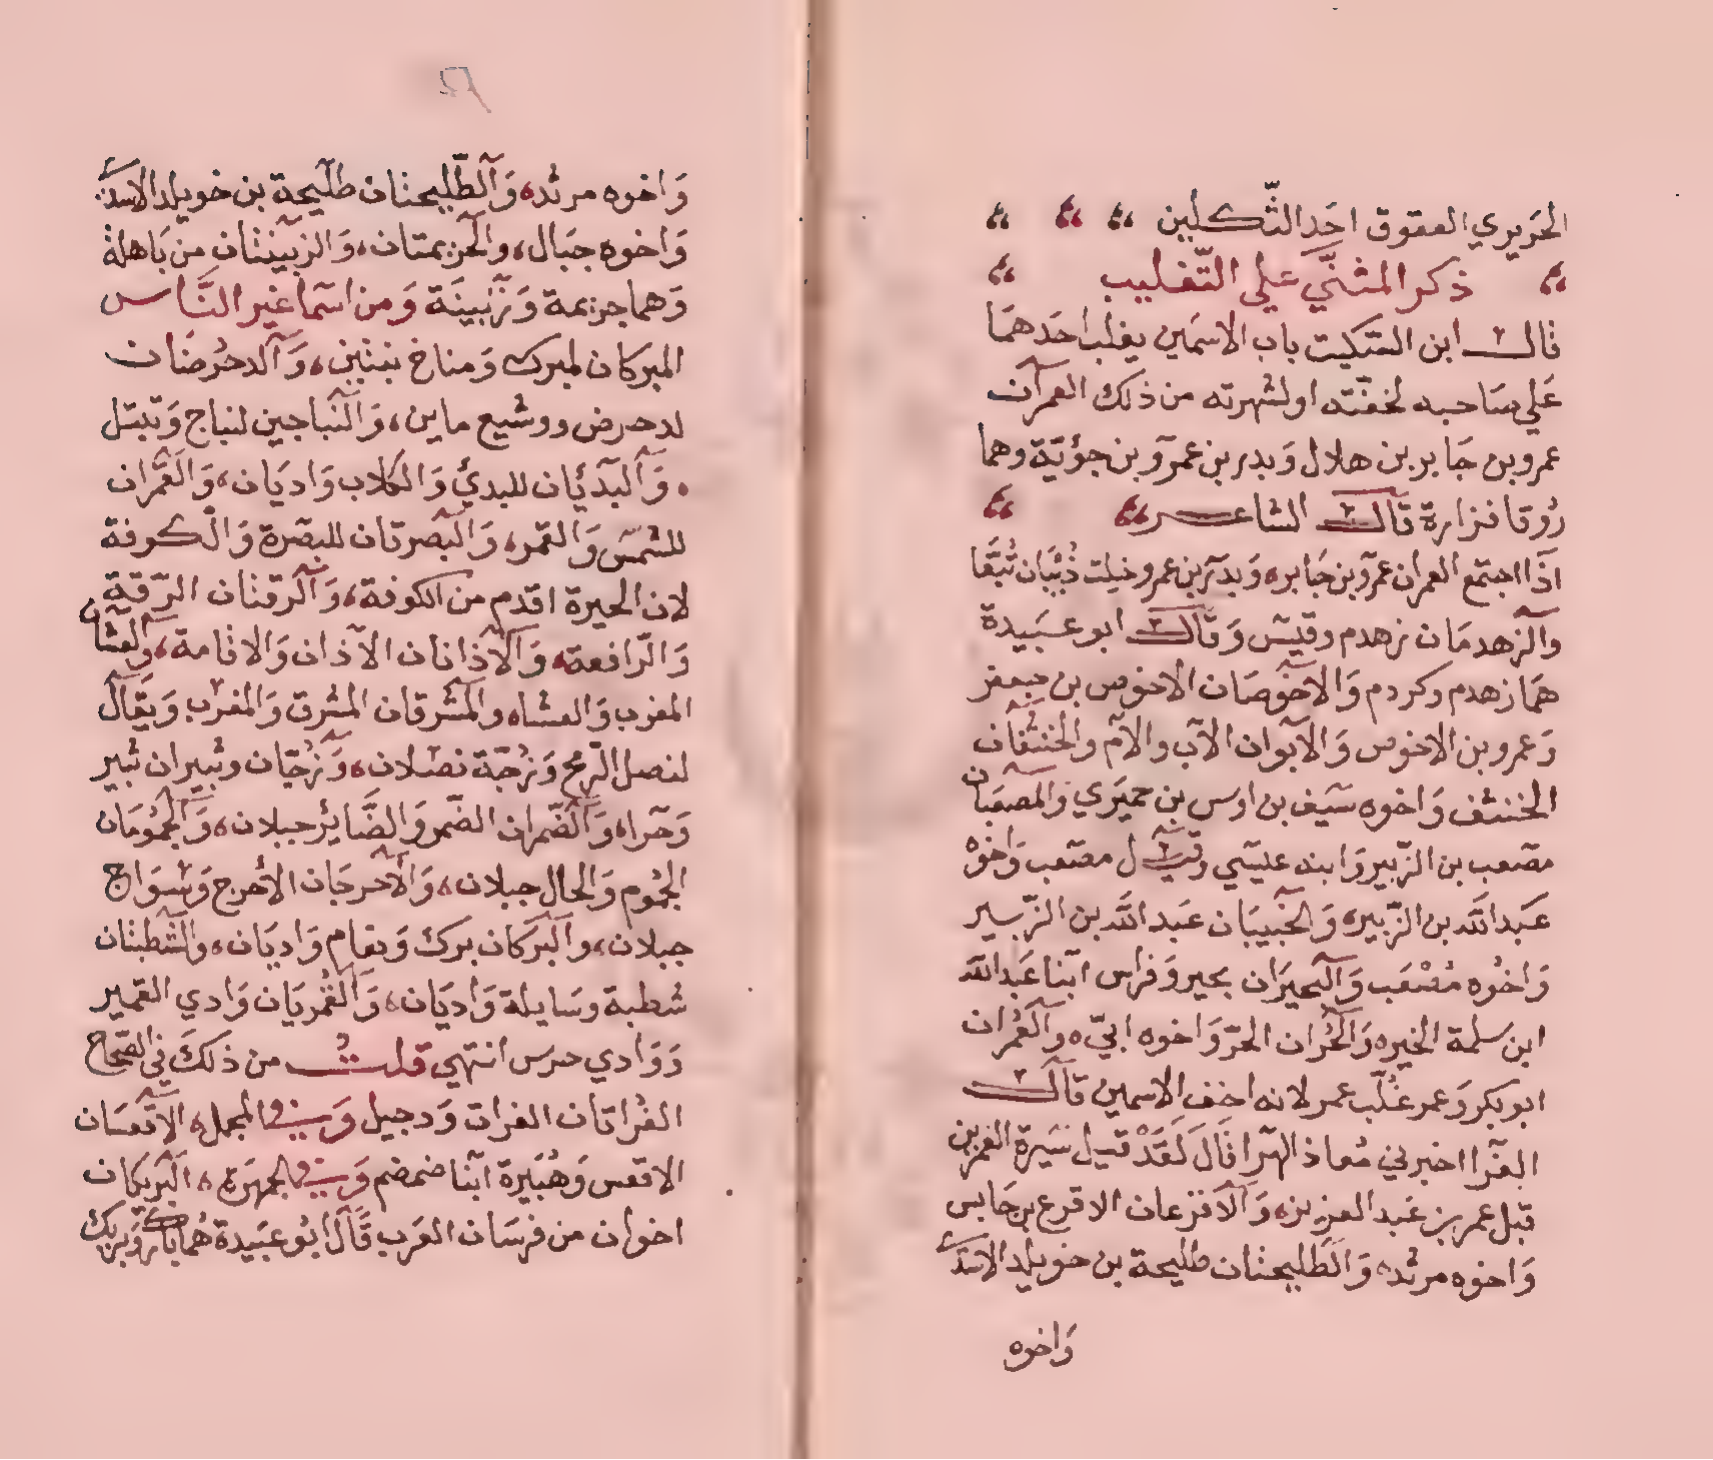 الحَريري العقوق احَد الثّكلين
ذكر المثنَّي عَلي التّغليب
قال ابن السّكيت باب الاسمَين يغلب احَدهمَا
عَلي صَاحبه لخفّته اولشهرته من ذلك العمرَان
عمرو بن جَابر بن هلال وَبدر بن عمرو بن جؤيّة وهما
رُوقا فزارة قال الشاعر
اذا اجتمع العمران عمرو بن جَابر وَبدر بن عمرو خيلت ذُبيَان تُبّعَا
والزهدمَان زهدم وقيس وَقال ابو عبَيدة
همَا زهدم وكردم وَالاحوَصَان الاخوص بن جعفر
وَعمرو بن الاخوص وَالابوان الاب والام والخنثفان
الخنثف وَاخوه سَيف بن اوس بن حميَري وَالمصعَبان
مصعب بن الزّبير وَابنه عليسي وقيل مصعب وَاخوه
عَبد الله بن الزّبير وَالخبيبَان عبَد الله بن الزّبير
وَاخوُه مُصْعَب وَالبحيرَان بحير وَفراس ابنا عَبد الله
ابن سَلمة الخير وَالحُران الحرّ وَاخوه ابيّ والعُمران
ابو بكر وَعمر غُلّب عمر لانه اخف الاسمين قال
الفرّا اخبرني مُعاذ الهرا قَالَ لَقَدْ قيل سَيرة العمرين
قبل عمر بن عَبد العزيز وَالاقرعان الاقرع بن حَابس
وَاخوه مرثد وَالطليحتان طليحة بن خويلد الاسدَي
وَاخوه
وَاخوه مرثد وَالطّليحتان طليحة بن خويلد الاسدي
وَاخوه حِبَال والحزيمتان وَالزبينتان من بَاهلة
وَهما حزيمة وَزَبينَة وَمن اسمَا غير النَّاس
المبركان لمبرك وَمناخ بنتين وَالدحُرضَان
لدحرض ووشيع ماين وَالنبَاجين لنباج وَتيتل
وَالبَديّان للبديّ وَالكلاب وَاديَان وَالقمران
للشمس وَالقمر وَالبَصرتان للبصَرة وَالكوفة
لان الحيرة اقدم من الكوفة وَالرقتان الرّقة
وَالرّافعة وَالاذانان الاذان وَالاقامة وَالعشآن
المغرب وَالعشاه والمشرقان المشرق وَالمغرب وَيقال
لنصل الرّمح وَزُجّة نصَلان وَزُجّان وثبيران ثبير
وَحرَاه وَالضّمران الضّمر وَالضَّاير جبلان وَالجمُومَان
الجمُوم وَالحال جبلان وَالاحرجَان الاحرج وَسوَاج
جبلان والبَركان برك وَنعام وَاديَان والشطبتان
شطبة وسَايلة وَاديَان وَالقُمريَان وَادي القمير
وَوَادي حرس انتهي قلت من ذلكَ في الصّحاح
الفُراتان الفرات وَدجيل وَفي المجمل الاقعسَان
الاقعس وَهُبَيرة ابنا ضمضم وَفي الجمهَرة البَريكان
اخوان من فرسَان العَرب قَال ابُو عبَيدة همُا بَارك وَبريك